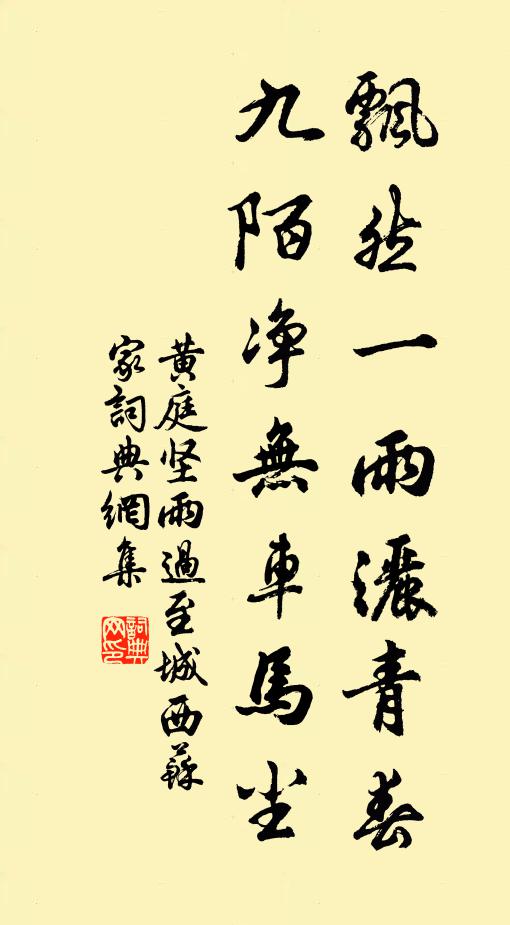 飄然一雨灑青春
九陌净無車馬尘
黄庭坚雨過至城西蘇
家詞典網集
詞典
网印